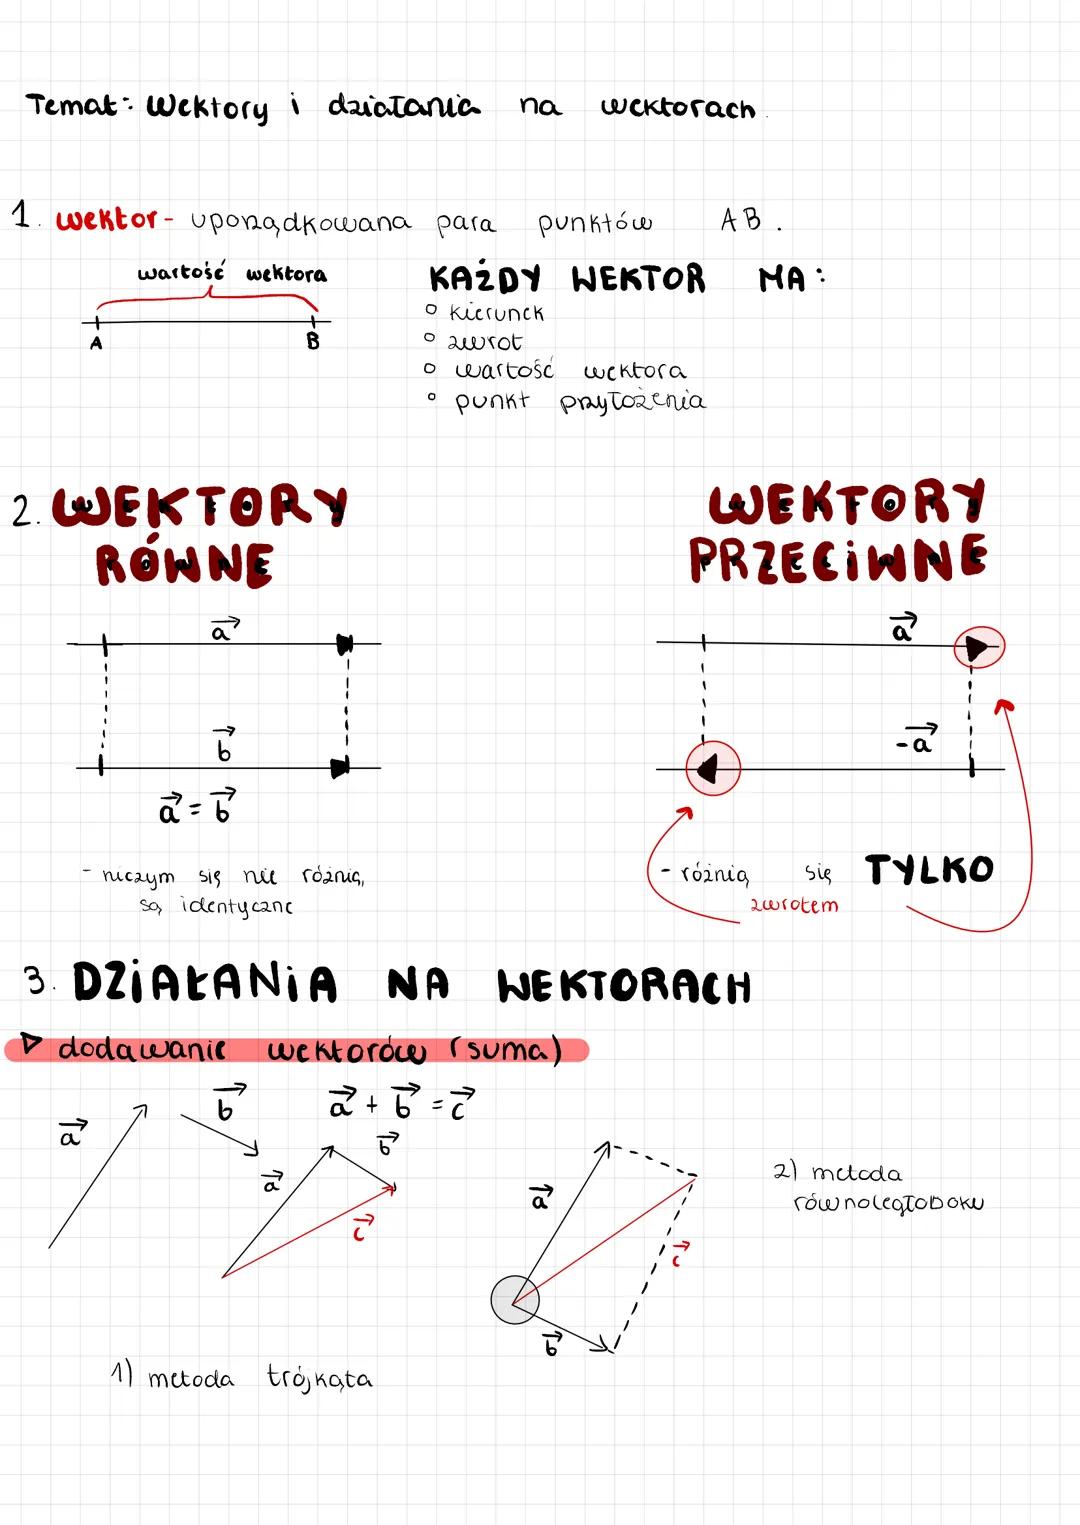 Temat: Wektory i działania na wektorach.
1. wektor - uporządkowana para punktów AB.
wartość wektora
A B
KAŻDY WEKTOR MA:
kierunek
zwrot
wartość wektora
punkt przyłożenia
2. WEKTORY RÓWNE
a
b
a = b
- niczym się nie różnią,
są identyczne
WEKTORY PRZECIWNE
a
-a
- różnią się TYLKO
zwrotem
3. DZIAŁANIA NA WEKTORACH
dodawanie wektorów (suma)
a b
a + b = c
a b c
1) metoda trójkąta
a b c
2) metoda
równoległoboku